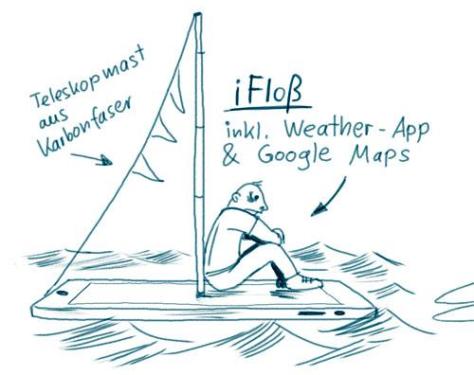 Teleskopmast
aus
Karbonfaser
iFloß
inkl. Weather-App
& Google Maps